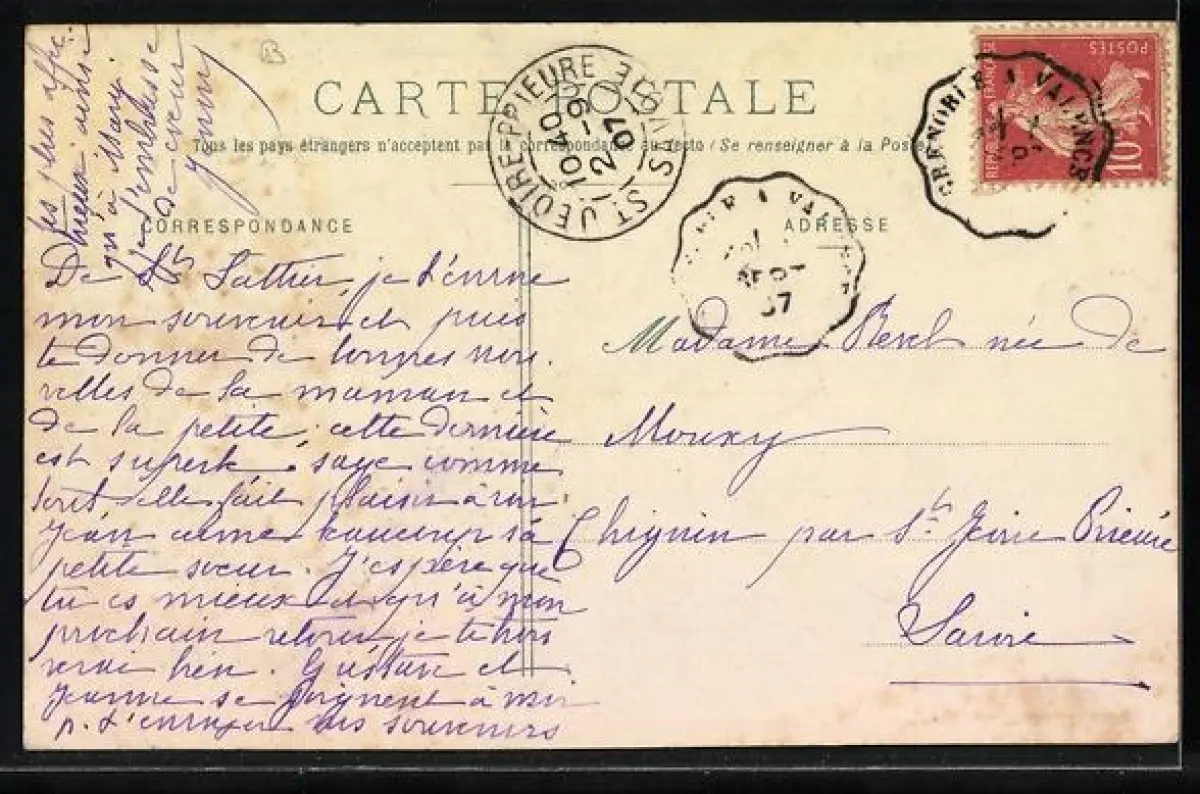 CARTE POSTALE
Tous les pays étrangers n'acceptent pas la correspondance au recto (Se renseigner à la Poste)
CORRESPONDANCE
ADRESSE
De St Lattier, je t'envoie
mon souvenir et puis
te donner de bonnes nou-
velles de la maman et
de la petite, cette dernière
est superbe sage comme
tout, elle fait plaisir à voir
Jean aime beaucoup sa
petite soeur. J'espère que
tu es mieux et qu'à mon
prochain retour, je te trou
verai bien. Gustave et
Jeanne se joignent à moi
p. t'envoyer nos souvenirs
les plus affec.
tueux ainsi
qu'à Mary.
Je t'embrasse
de coeur
Madame née de
Mouxy
Chignin par St Jeoire Prieuré
Savoie
ST JEOIRE-PRIEURE SAVOIE
10 40
2-9
07
GRENOBLE A VALENCE
SEPT
07
REPUBLIQUE FRANÇAISE
POSTES
10